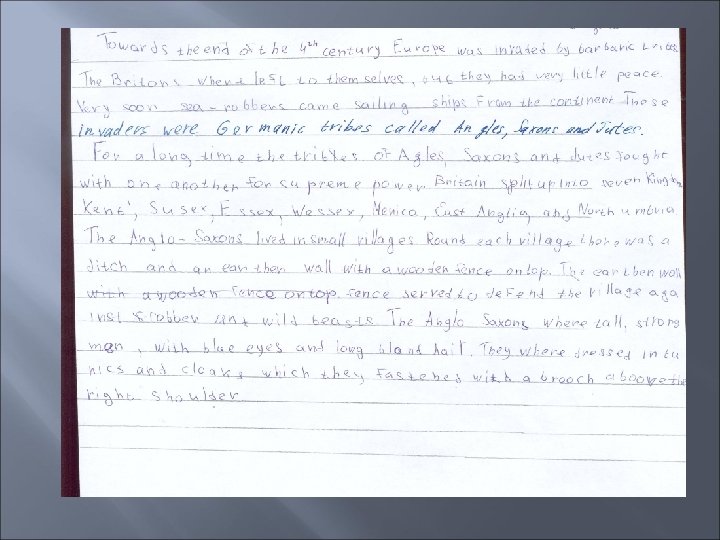 Towards the end of the 4th century Europe was invaded by barbaric tribes
The Britons where left to themselves, but they had very little peace.
Very soon sea-robbers came sailing ships From the continent These
invaders were Germanic tribes called Angles, Saxons and Jutes.
For a long time the tribes of Agles, Saxons and Jutes fought
with one another for supreme power. Britain split up into seven Kingdom
Kent, Susex, Essex, Wessex, Mercia, East Anglia, and North umbria
The Anglo-Saxons lived in small villages Round each village there was a
ditch and an earthen wall with a wooden fence on top. The earthen wall
with a wooden fence on top. fence served to defend the village aga
inst robber and wild beasts. The Anglo Saxons where tall, strong
men, with blue eyes and long blond hait. They where dressed in tu
nics and cloaks which they fastened with a brooch aboove the
right shoulder.